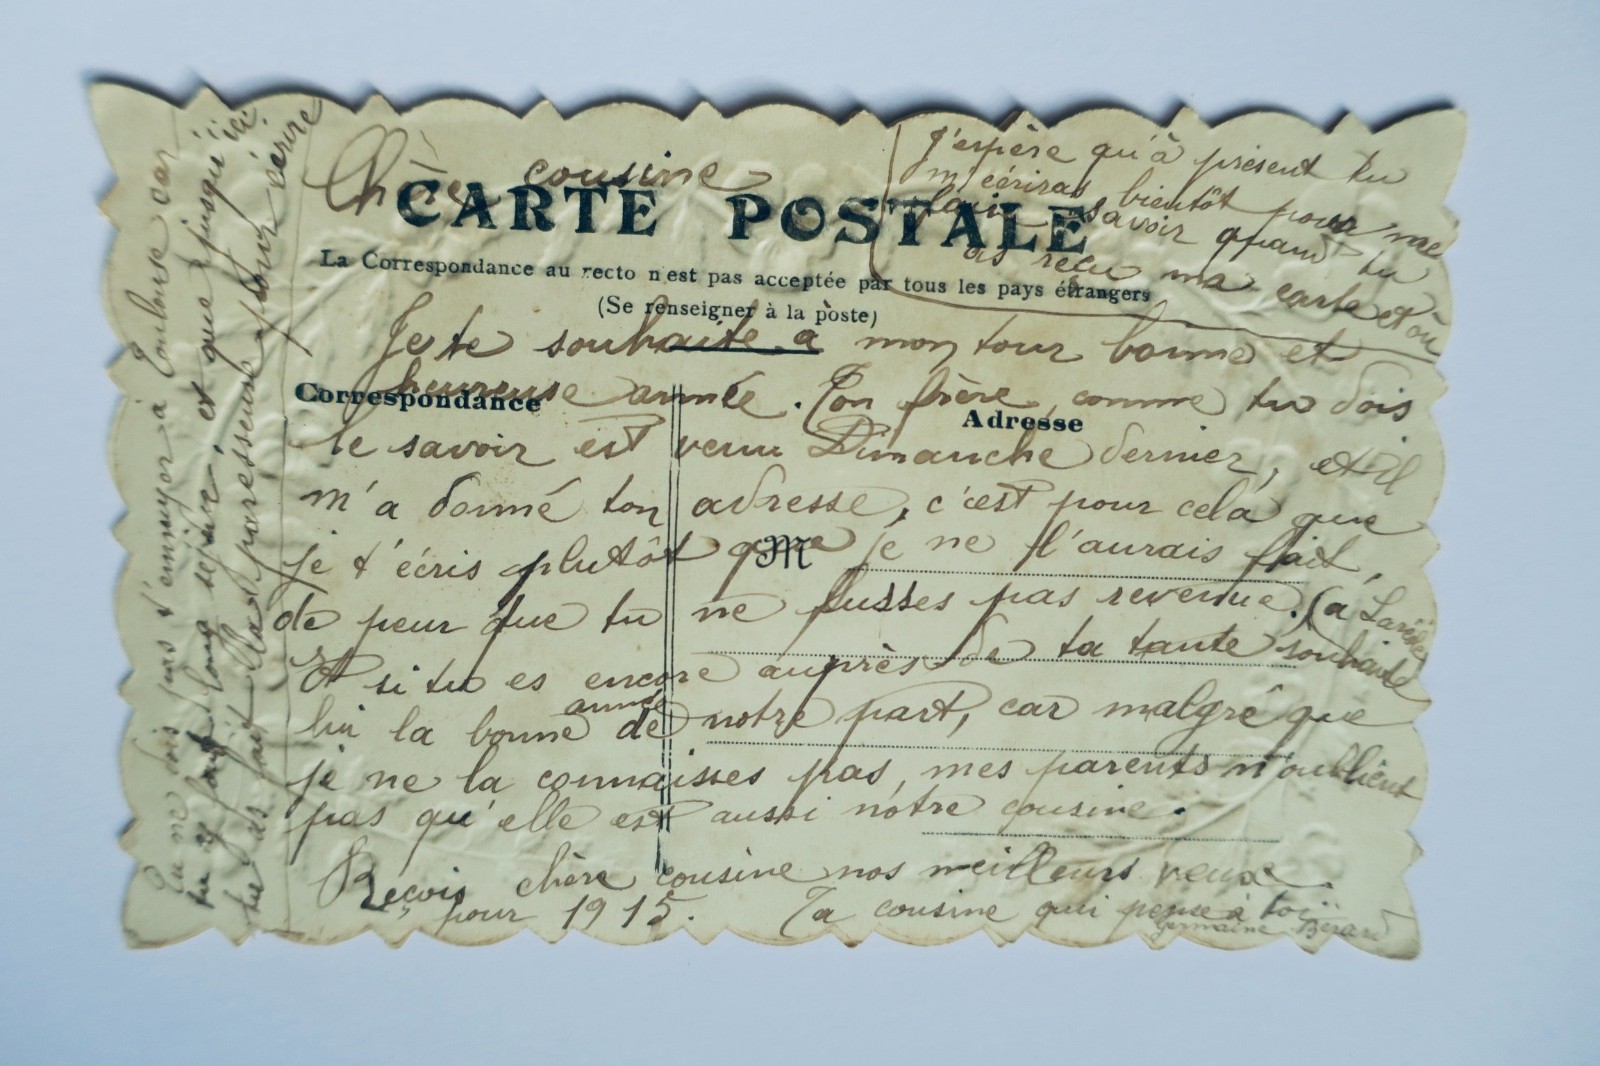 Chère cousine
CARTE POSTALE
La Correspondance au recto n'est pas acceptée par tous les pays étrangers
(Se renseigner à la poste)
Je te souhaite a mon tour bonne et
heureuse année. Ton frère, comme tu dois
Correspondance
Adresse
le savoir est venu Dimanche dernier, et il
m'a donné ton adresse, c'est pour cela que
je t'écris plutôt que je ne l'aurais fait,
M
de peur que tu ne fusses pas revenue. (a
Et si tu es encore auprès de ta tante souhaite
lui la bonne année de notre part, car malgré que
je ne la connaisses pas, mes parents n'oublient
pas qu'elle est aussi notre cousine.
Reçois chère cousine nos meilleurs veux
pour 1915. Ta cousine qui pense à toi
Germaine Bérard
J'espère qu'à présent tu
m'écriras bientôt pour me
faire savoir quand tu
as reçu ma carte et où
Tu ne dois pas t'ennuyer à Toulouse car
tu as fait long séjour, et que jusqu'ici
tu as fait la paresseuse pour écrire